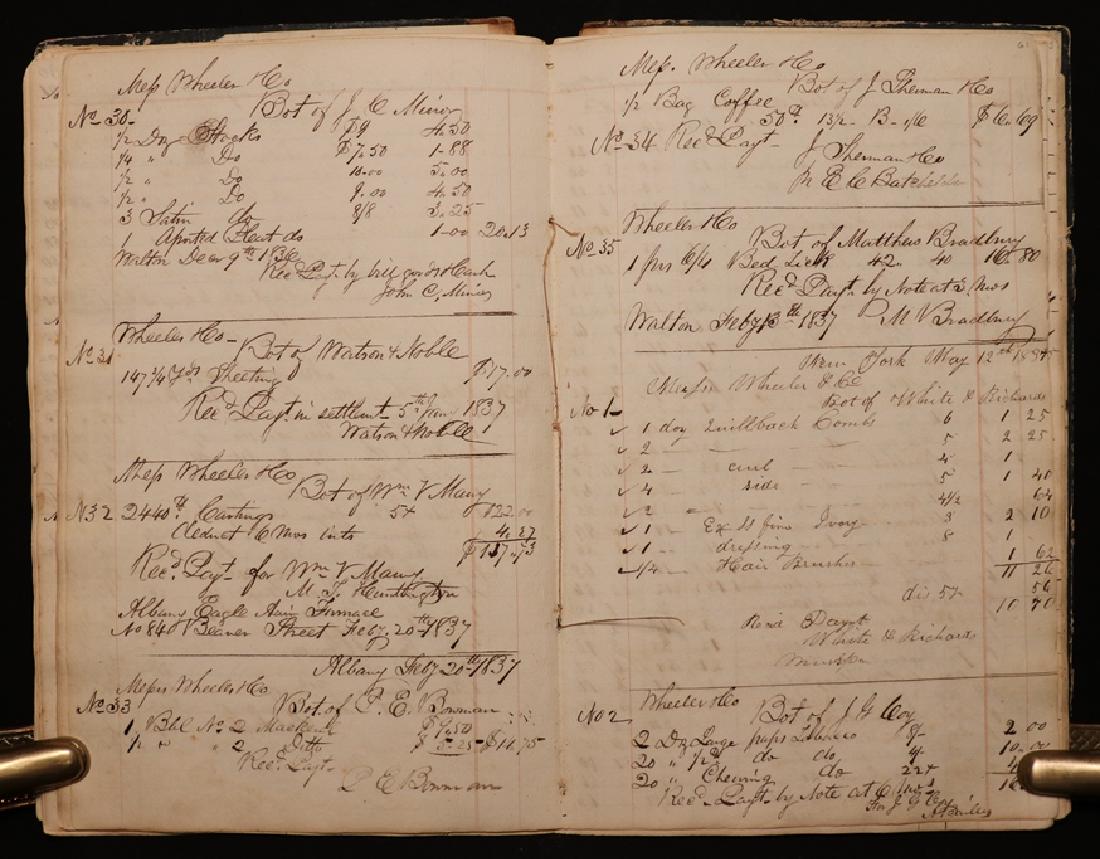 Mess Wheeler & Co
No 30- Bot of J. C. Minor
1/2 Doz Stocks $9 4.50
1/4 " Do $7.50 1.88
1/2 " Do 10.00 5.00
1/2 " Do 9.00 4.50
3 Satin do 8/8 3.25
1 do 1.00 20.13
Walton Decr 9th 1836
Recd Payt by bill goods & Cash
John C. Minor
Wheeler & Co
No 31 Bot of Watson & Noble
147 1/4 yds Sheeting $17.00
Recd Payt in settlement 5th Jany 1837
Watson & Noble
Mess Wheeler & Co
Bot of Wm V Many
No 32 2440 lb Castings 5+ $122.00
Deduct 6 Mos ints 4.27
$117.73
Recd Payt for Wm V Many
M. T. Huntington
Albany Eagle Furnace
No 84 Beaver Street Feby 20th 1837
Albany Feby 20th 1837
Messrs Wheeler & Co
No 33 Bot of P. E. Bowman
1 Bbl No 2 Mackerel $9.50
1/2 " " 2 Ditto $5.25 - $14.75
Recd Payt
P E Bowman
61
Mess. Wheeler & Co
Bot of J Sherman & Co
1/2 Bag Coffee 50 lb 13 1/2 $6.69
No 34 Recd Payt J Sherman & Co
Wheeler & Co
No 35 Bot of Matthew Bradbury
1 pcs 6/4 Bed Tick 42 40 16.80
Recd Payt by Note at 2 Mos
Walton Feby 13th 1837 M V Bradbury
New York May 12th
Messrs Wheeler & Co
No 1 Bot of White & Richards
1 doz Quillback Combs 6 1 25
2 - - - 5 2 25
2 - curl - 4 1
4 - side - 5 1 40
2 - " 4 1/2 64
1 - Ex S fine Ivory 3 2 10
1 - dressing 8 1
1/4 - Hair Brushes 1 62
11 26
dis 5+ 56
10 70
Recd Payt
White & Richards
Wheeler & Co
No 2 Bot of J G Coy
2 Doz Large paps Tobacco 8/- 2 00
20 " 1/2 lb do do 4/- 10.00
20 " Chewing do 22+
Recd Payt by Note at 6 Mos
For J G